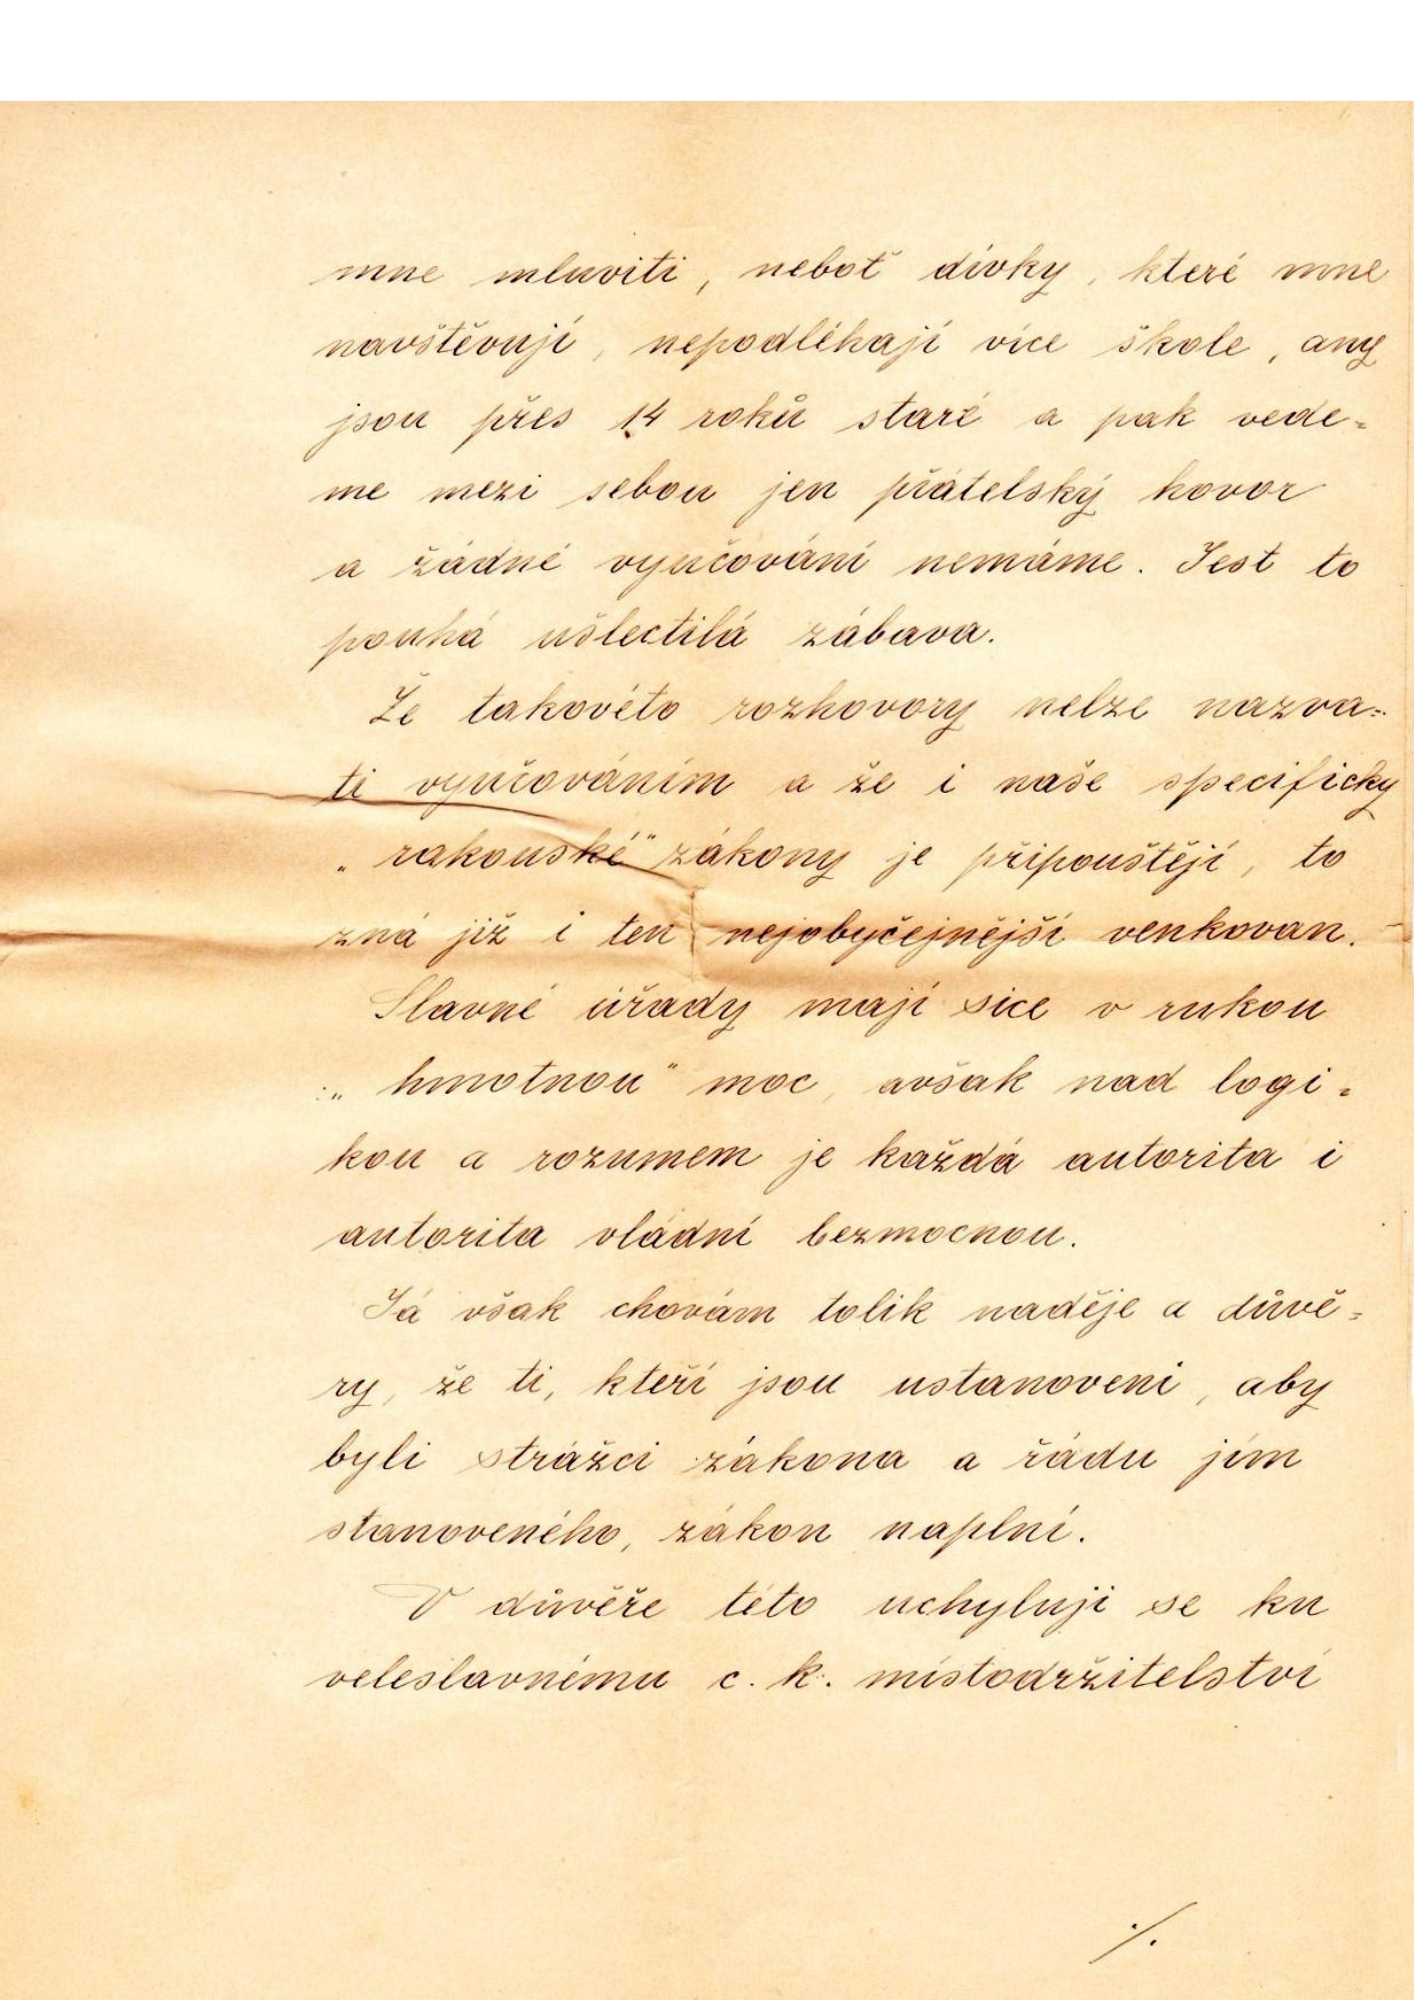 mne mluviti, neboť dívky, které mne
navštěvují, nepodléhají více škole, any
jsou přes 14 roků staré a pak vede=
me mezi sebou jen přátelský hovor
a žádné vyučování nemáme. Jest to
pouhá ušlectilá zábava.
Že takovéto rozhovory nelze nazva=
ti vyučováním a že i naše specificky
„rakouské" zákony je připouštějí, to
zná již i ten nejobyčejnější venkovan.
Slavné úřady mají sice v rukou
„hmotnou" moc, avšak nad logi=
kou a rozumem je každá autorita i
autorita vládní bezmocnou.
Já však chovám tolik naděje a důvě=
ry, že ti, kteří jsou ustanoveni, aby
byli strážci zákona a řádu jím
stanoveného, zákon naplní.
V důvěře této uchyluji se ku
veleslavnému c. k. místodržitelství
./.